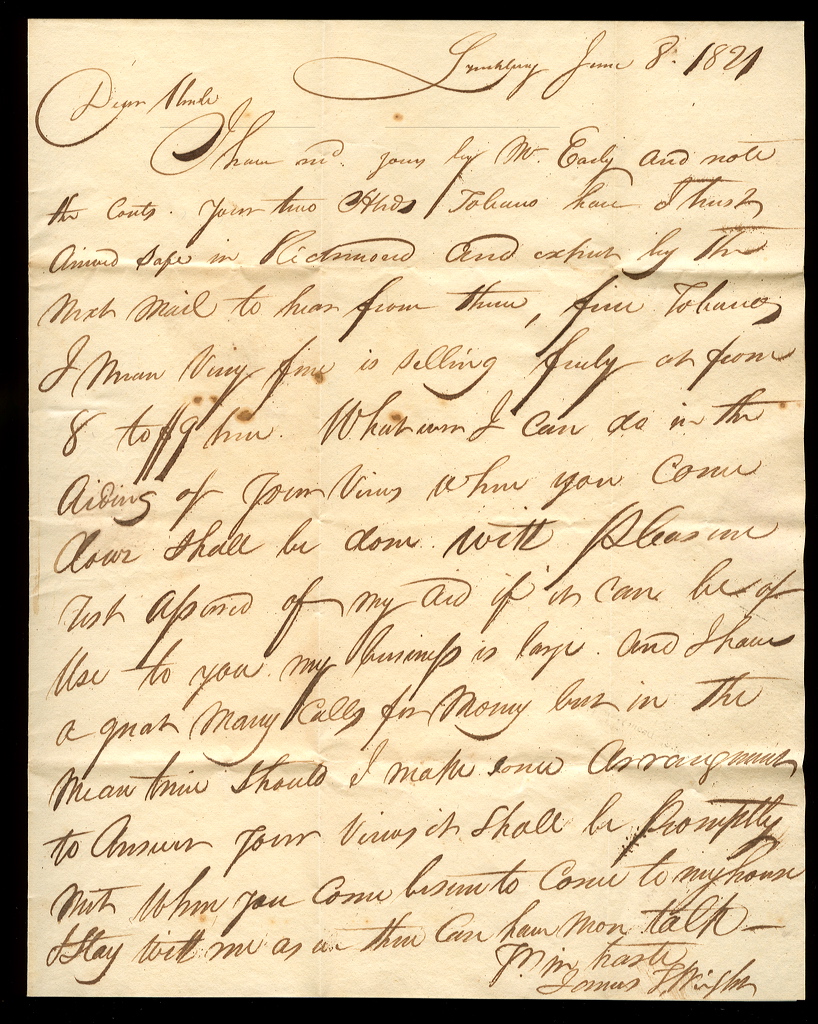 Lynchburg June 8. 1821
Dear Uncle
I have recd. yours by Mr. Early and note
the Conts. Your two Hhds Tobacco have I trust
arrived safe in Richmond and expect by the
next mail to hear from them, fine Tobacco
I mean Very fine is selling freely at from
8 to $9 here. Whatever I can do in the
aiding of your Views when you come
down shall be done with pleasure
rest assured of my aid if it can be of
Use to you my business is large and I have
a great many Calls for Money but in the
mean time should I make some arrangment
to answer your Views it shall be promptly
met When you come be sure to come to my house
& Stay with me as we then can have more talk —
in haste
James Wright